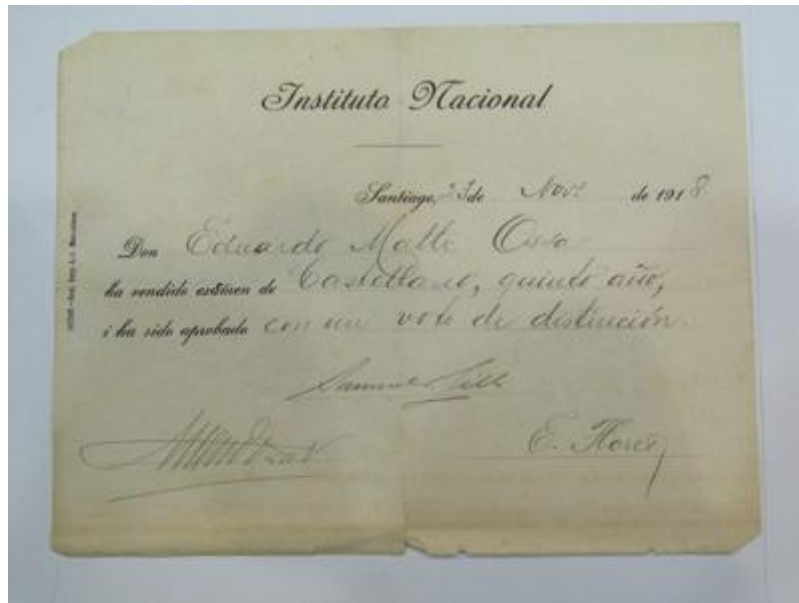 Instituto Nacional
Santiago, 23 de Nov. de 1918
Don Eduardo Matte Ossa
ha rendido exámen de Castellano, quinto año,
i ha sido aprobado con un voto de distinción.
Samuel
E. Flores